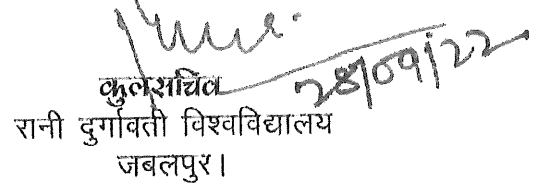 28/09/22
कुलसचिव
रानी दुर्गावती विश्वविद्यालय
जबलपुर।